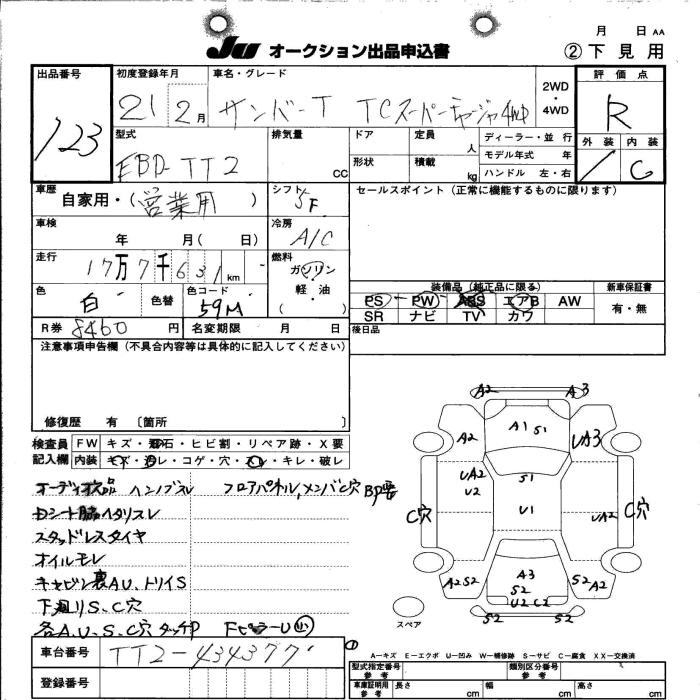 月 日 AA
JU オークション出品申込書 ②下見用
出品番号 初度登録年月 車名・グレード 2WD・4WD 評価点
123 21 2月 サンバーT TCスーパーチャージャ4WD R
型式 排気量 ドア 定員 人 ディーラー・並行 外装 内装
EBD-TT2 cc 形状 積載 kg モデル年式 年 C
ハンドル 左・右
車歴 自家用・(営業用) シフト 5F セールスポイント(正常に機能するものに限ります)
車検 年 月( 日) 冷房 A/C
走行 17万7千631km 燃料 ガソリン 軽・油 ( )
色 白 色替 色コード 59M 装備品(純正品に限る) 新車保証書
PS PW ABS エアB AW 有・無
SR ナビ TV カワ
R券 8460円 名変期限 月 日 後日品
注意事項申告欄(不具合内容等は具体的に記入してください)
修復歴 有 〔箇所 〕
検査員 FW キズ・飛石・ヒビ割・リペア跡・X要
記入欄 内装 キズ・汚レ・コゲ・穴・スレ・キレ・破レ
オーディオ欠品 ハンドルスレ フロアパネル,メンバC穴 BP要
Dシート脇ヘタリスレ
スタッドレスタイヤ
オイルモレ
キャビン裏AU、トリイS
下廻りS、C穴
各A、U、S、C穴タッチP FピラーU
A2 A3
A1 S1
A2 UA3
UA2 U2 S1
C穴 U1 UA2 C穴
A3
A2 S2 S2 S2 A2
U2 C2
S2 S2
スペア
A-キズ E-エクボ U-凹み W-補修跡 S-サビ C-腐食 XX-交換済
車台番号 TT2-434377
登録番号
型式指定番号 参考 類別区分番号 参考
車庫証明用 参考 長さ cm 幅 cm 高さ cm